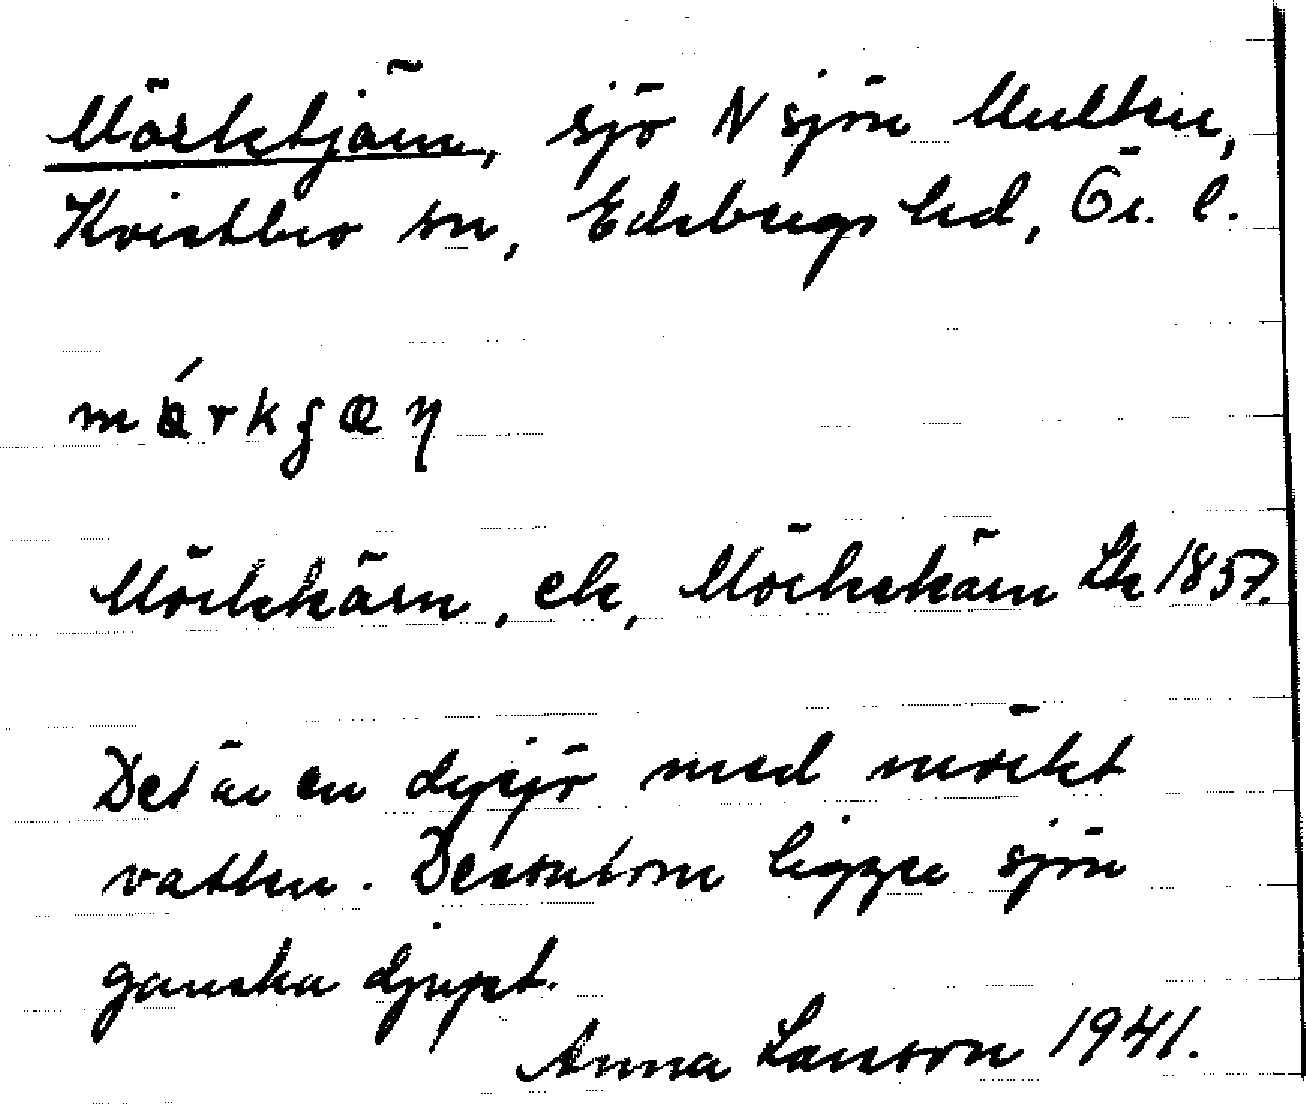 Mörktjärn, sjö N sjön Multen,
Kvistbro sn, Edsbergs hd, Ör. l.
Mörkkärn, ek, Mörkekärn Lk 1857.
Det är en dysjö med mörkt
vatten. Dessutom ligger sjön
ganska djupt.
Anna Larsson 1941.